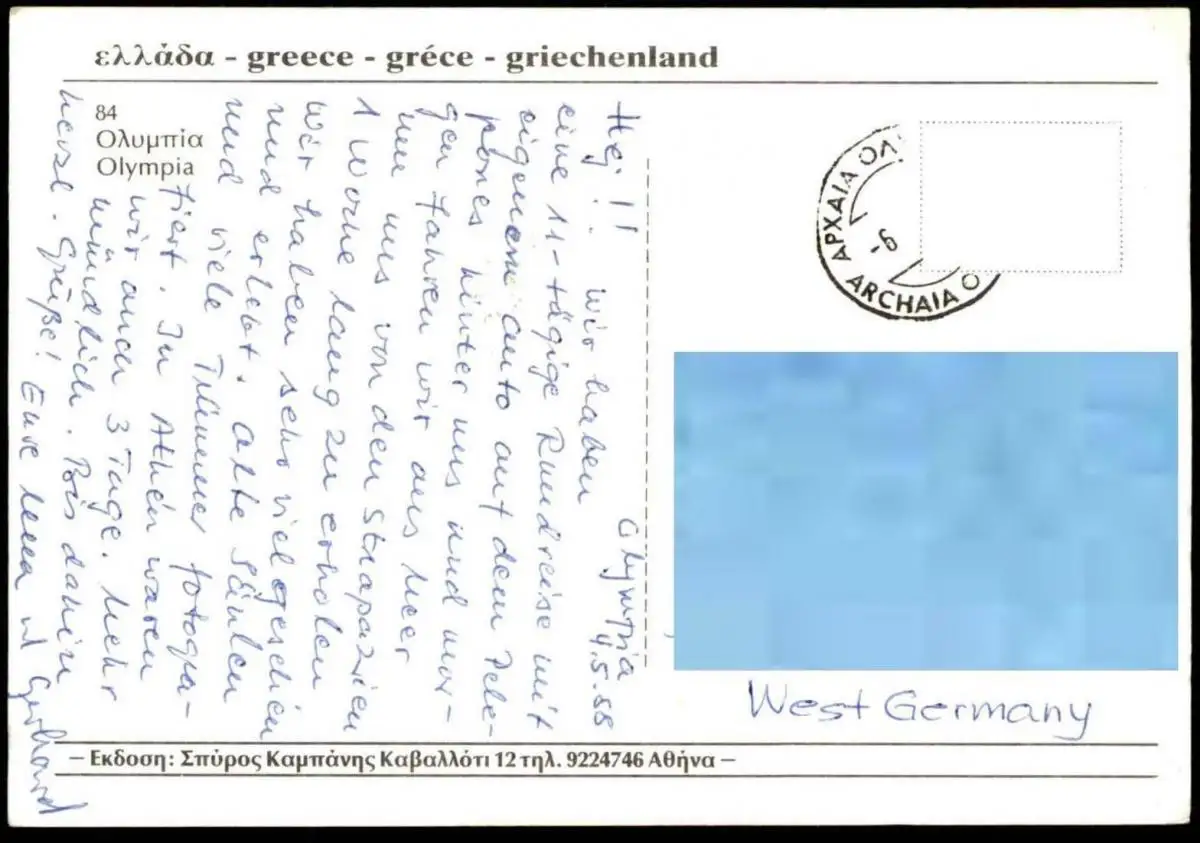 ελλάδα - greece - gréce - griechenland
84
Ολυμπία
Olympia
Olympia
4.5.88
Hej!! wir haben
eine 11-tägige Rundreise mit
eigenem Auto auf dem Pelo-
pones hinter uns und mor-
gen fahren wir ans Meer
um uns von den Strapazien
1 Woche lang zu erholen
wir haben sehr viel gesehen
und erlebt. Alte Säulen
und viele Trümmer fotogra-
fiert. In Athen waren
wir auch 3 Tage. Mehr
mündlich. Bis dahin
herzl. Grüße! Eure u Gerhard
ΑΡΧΑΙΑ ΟΛΥ
-9
ARCHAIA O
West Germany
– Εκδοση: Σπύρος Καμπάνης Καβαλλότι 12 τηλ. 9224746 Αθήνα –